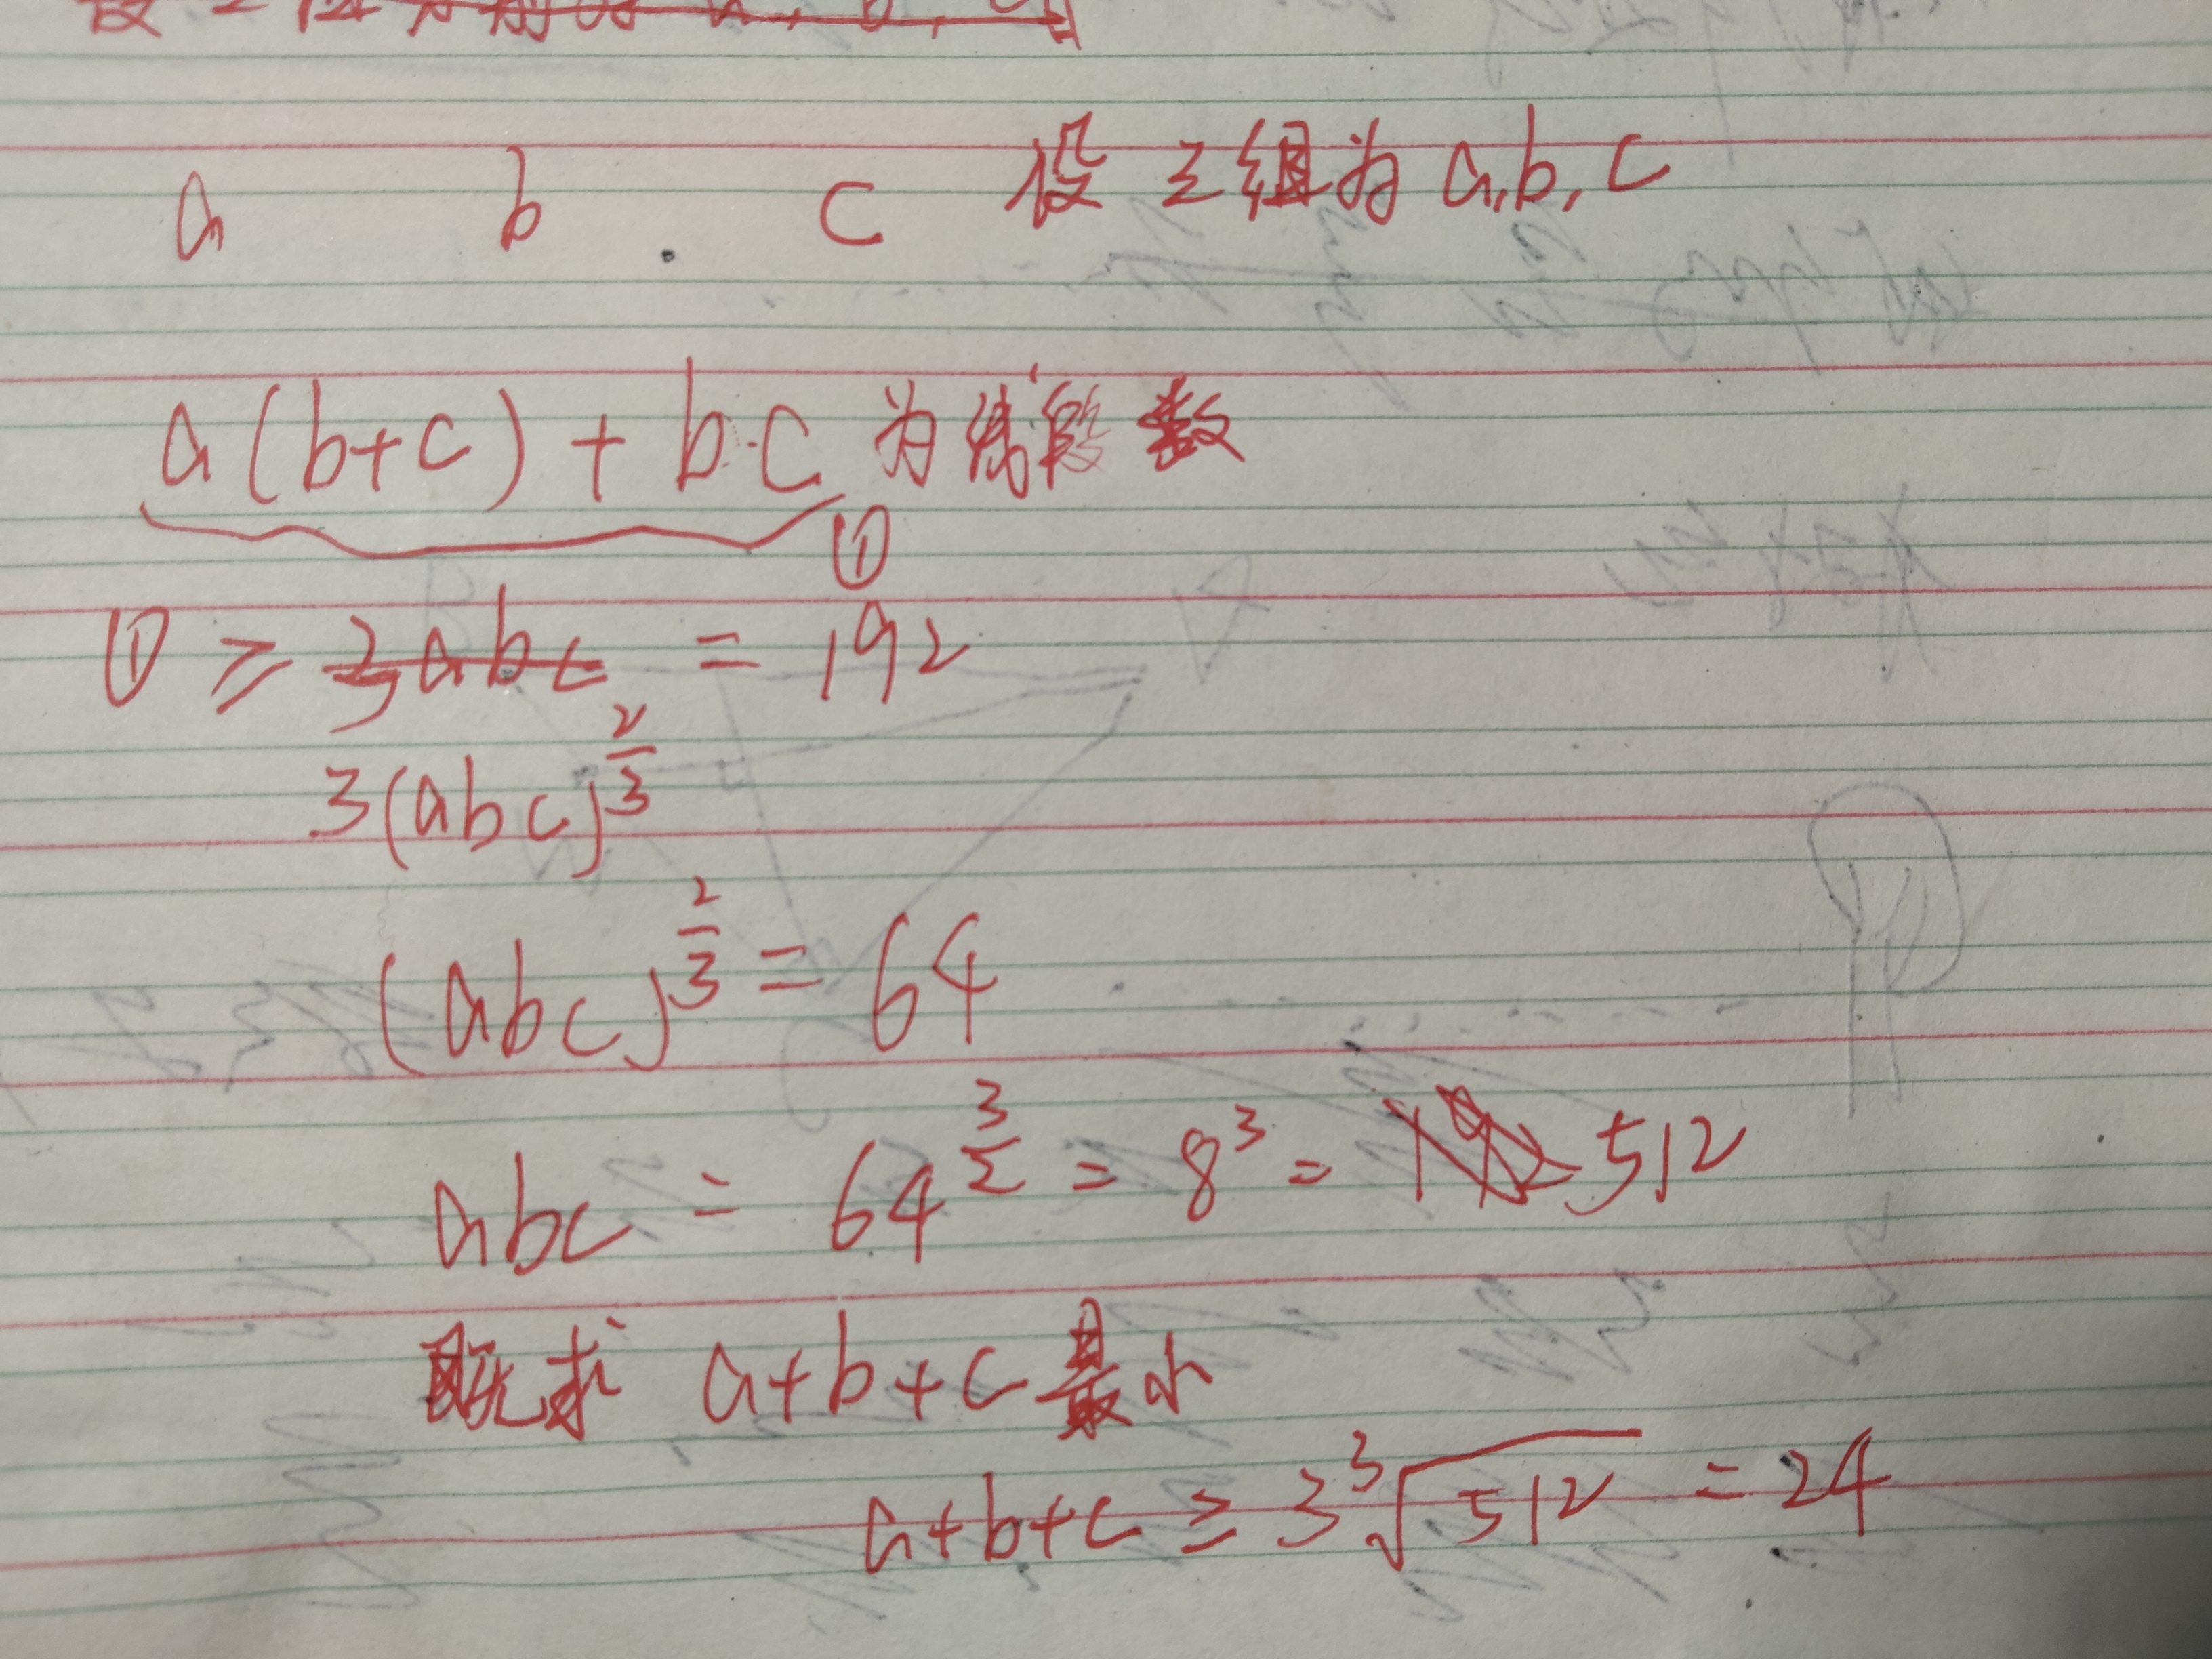 a b c 设三组为a,b,c
a(b+c)+b·c 为线段数
①
① ≥ 3abc = 192
3(abc)^{2/3}
(abc)^{2/3} = 64
abc = 64^{3/2} = 8³ = 192 512
既求 a+b+c 最小
a+b+c ≥ 3∛512 = 24